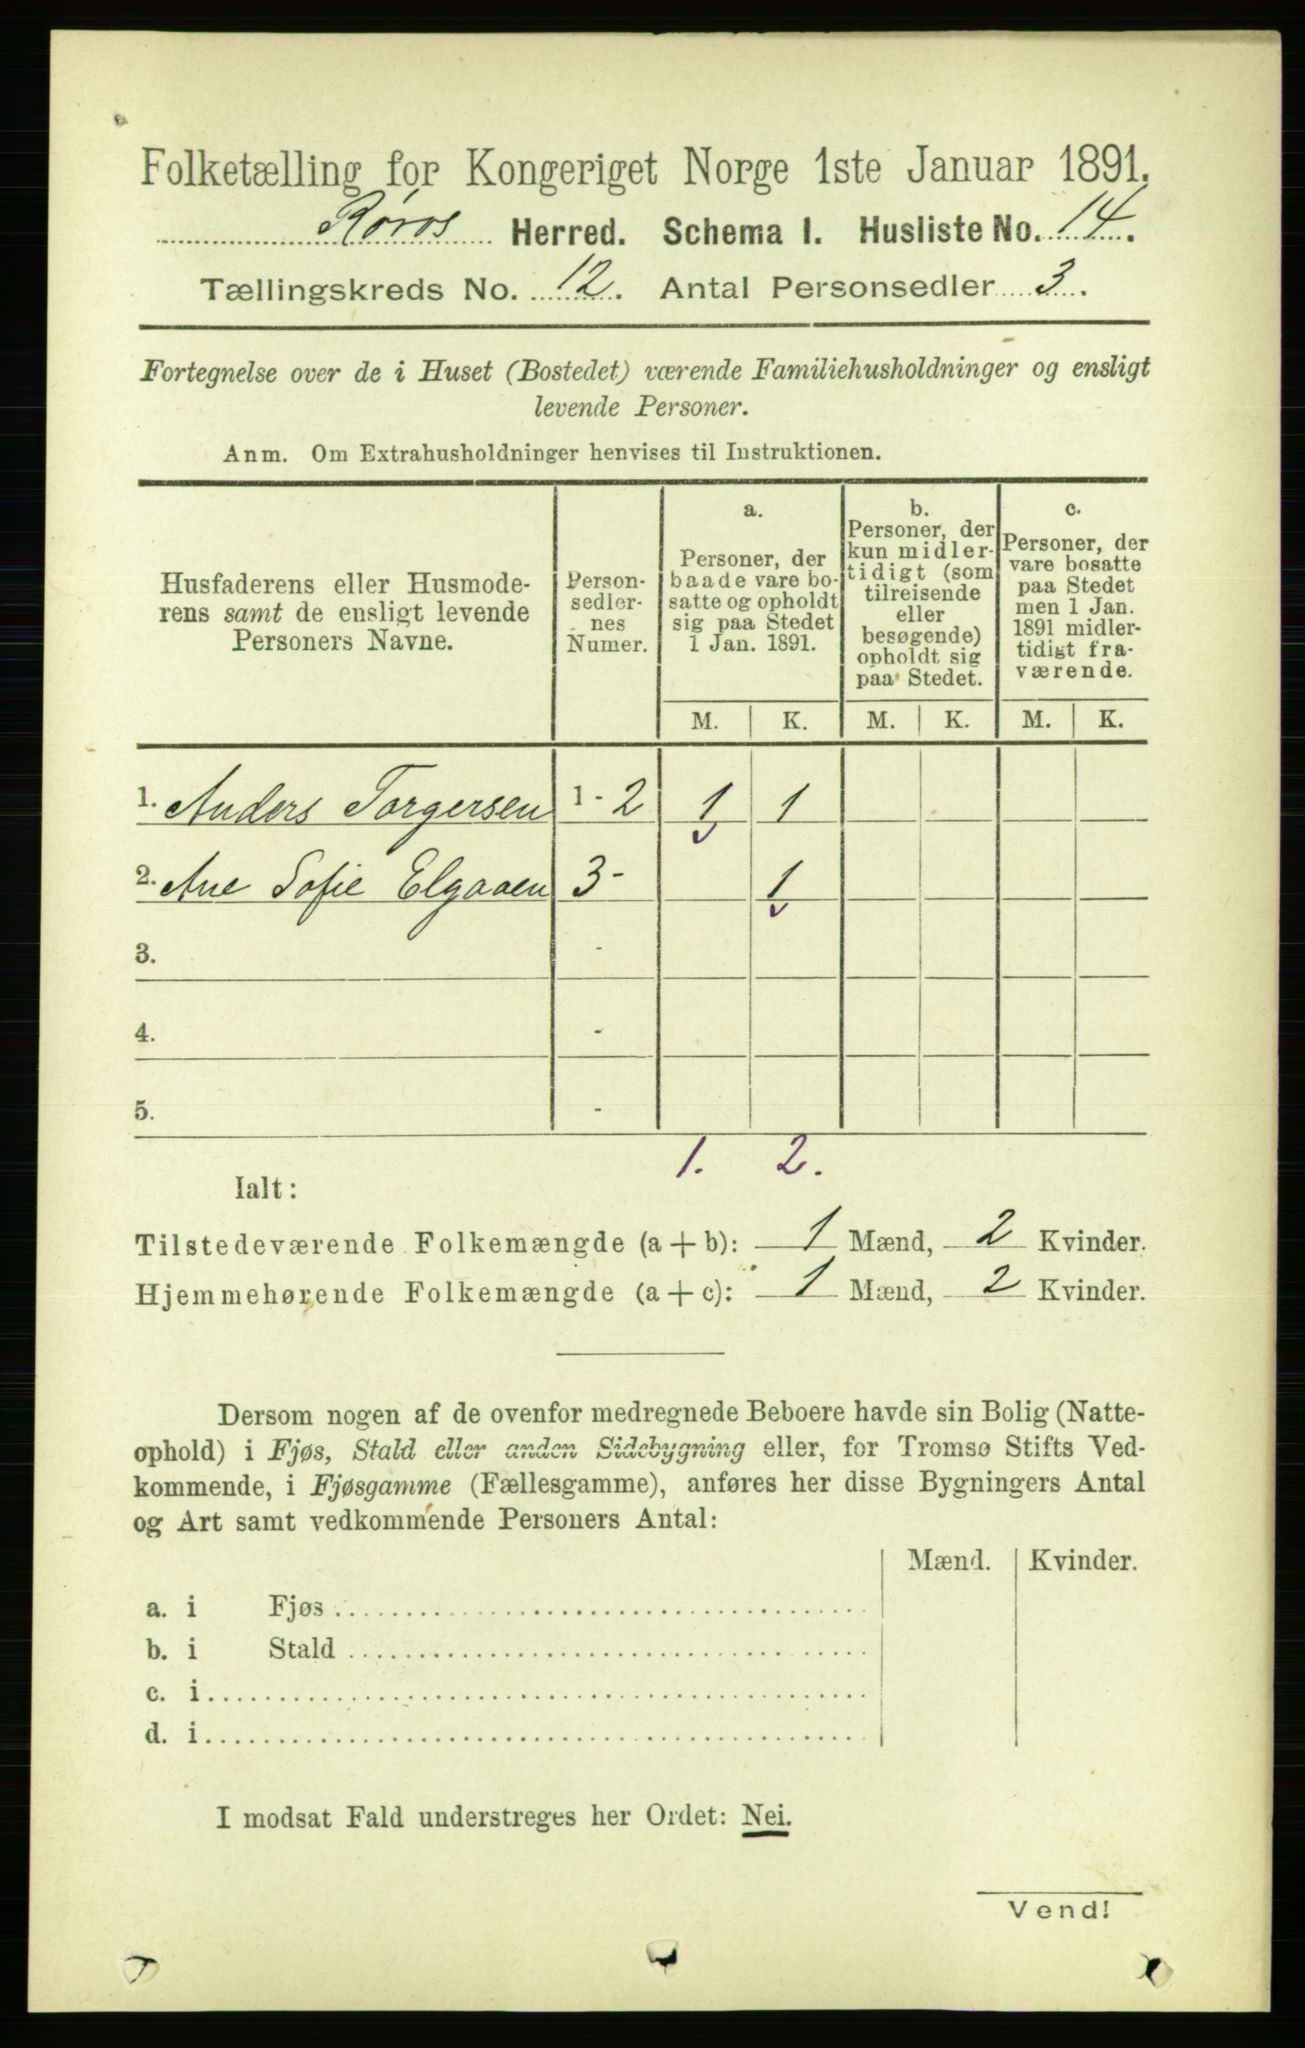 Folketælling for Kongeriget Norge 1ste Januar 1891.
Røros Herred. Schema I. Husliste No. 14.
Tællingskreds No. 12. Antal Personsedler 3.
Fortegnelse over de i Huset (Bostedet) værende Familiehusholdninger og ensligt
levende Personer.
Anm. Om Extrahusholdninger henvises til Instruktionen.
Husfaderens eller Husmode-
rens samt de ensligt levende
Personers Navne.
Person-
sedler-
nes
Numer.
a.
Personer, der
baade vare bo-
satte og opholdt
sig paa Stedet
1 Jan. 1891.
b.
Personer, der
kun midler-
tidigt (som
tilreisende
eller
besøgende)
opholdt sig
paa Stedet.
c.
Personer, der
vare bosatte
paa Stedet
men 1 Jan.
1891 midler-
tidigt fra-
værende.
M. K. M. K. M. K.
1. Anders Torgersen 1 - 2 1 1
2. Ane Sofie Elgaaen 3 - 1
3. -
4. -
5. -
1. 2.
Ialt:
Tilstedeværende Folkemængde (a + b): 1 Mænd, 2 Kvinder.
Hjemmehørende Folkemængde (a + c): 1 Mænd, 2 Kvinder.
Dersom nogen af de ovenfor medregnede Beboere havde sin Bolig (Natte-
ophold) i Fjøs, Stald eller anden Sidebygning eller, for Tromsø Stifts Ved-
kommende, i Fjøsgamme (Fællesgamme), anføres her disse Bygningers Antal
og Art samt vedkommende Personers Antal:
Mænd. Kvinder.
a. i Fjøs
b. i Stald
c. i
d. i
I modsat Fald understreges her Ordet: Nei.
Vend!